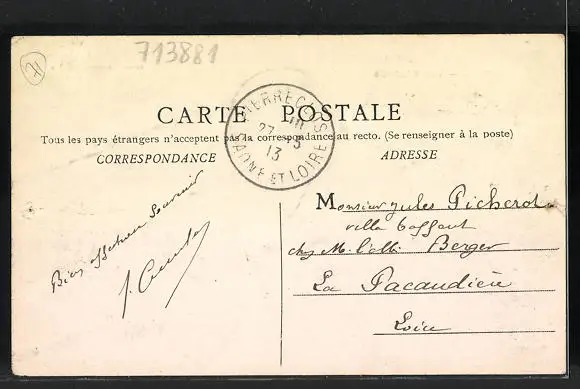 713881
71
CARTE POSTALE
PIERRECLOS
27 - 3
13
SAONE ET LOIRE
Tous les pays étrangers n'acceptent pas la correspondance au recto. (Se renseigner à la poste)
CORRESPONDANCE
ADRESSE
Bien affectueux Souvenir
Monsieur Jules Picherot
chez M. l'abbé Berger
La Pacaudière
Loire